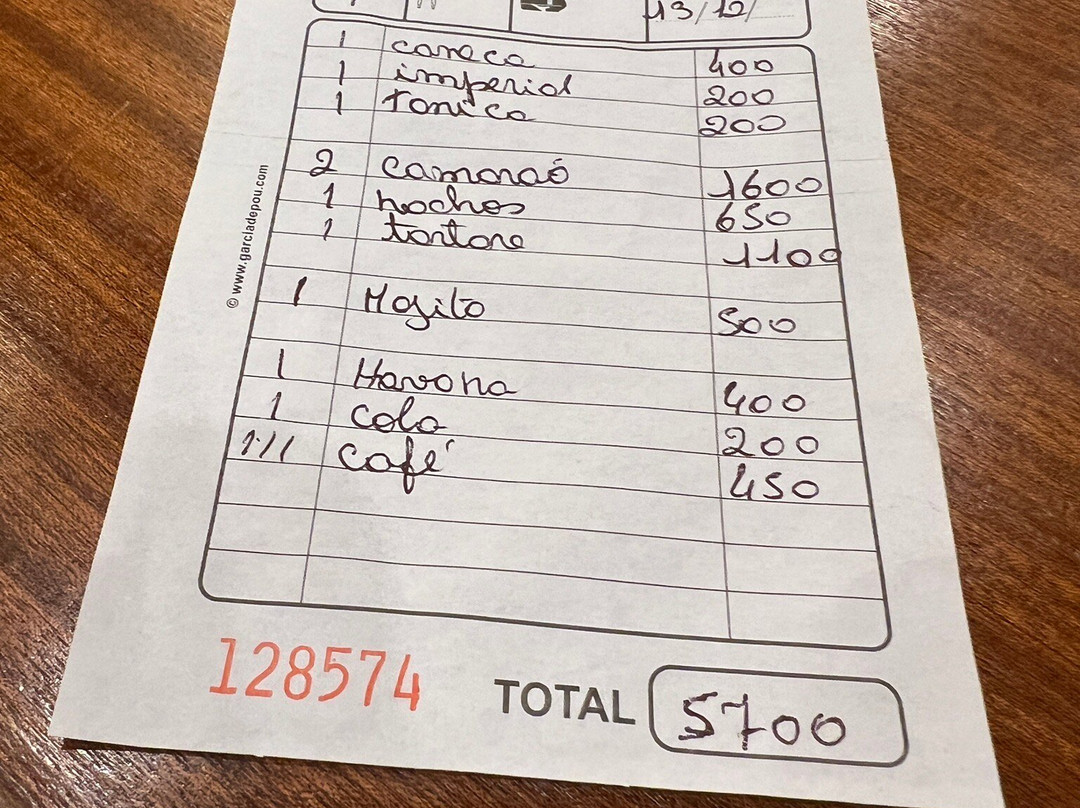 13/12/
1 caneca 400
1 imperial 200
1 tonica 200
2 camaraó 1600
1 nachos 650
1 tortore 1100
1 Mojito 500
1 Havona 400
1 cola 200
111 café 450
© www.garciadepou.com
128574
TOTAL 5700